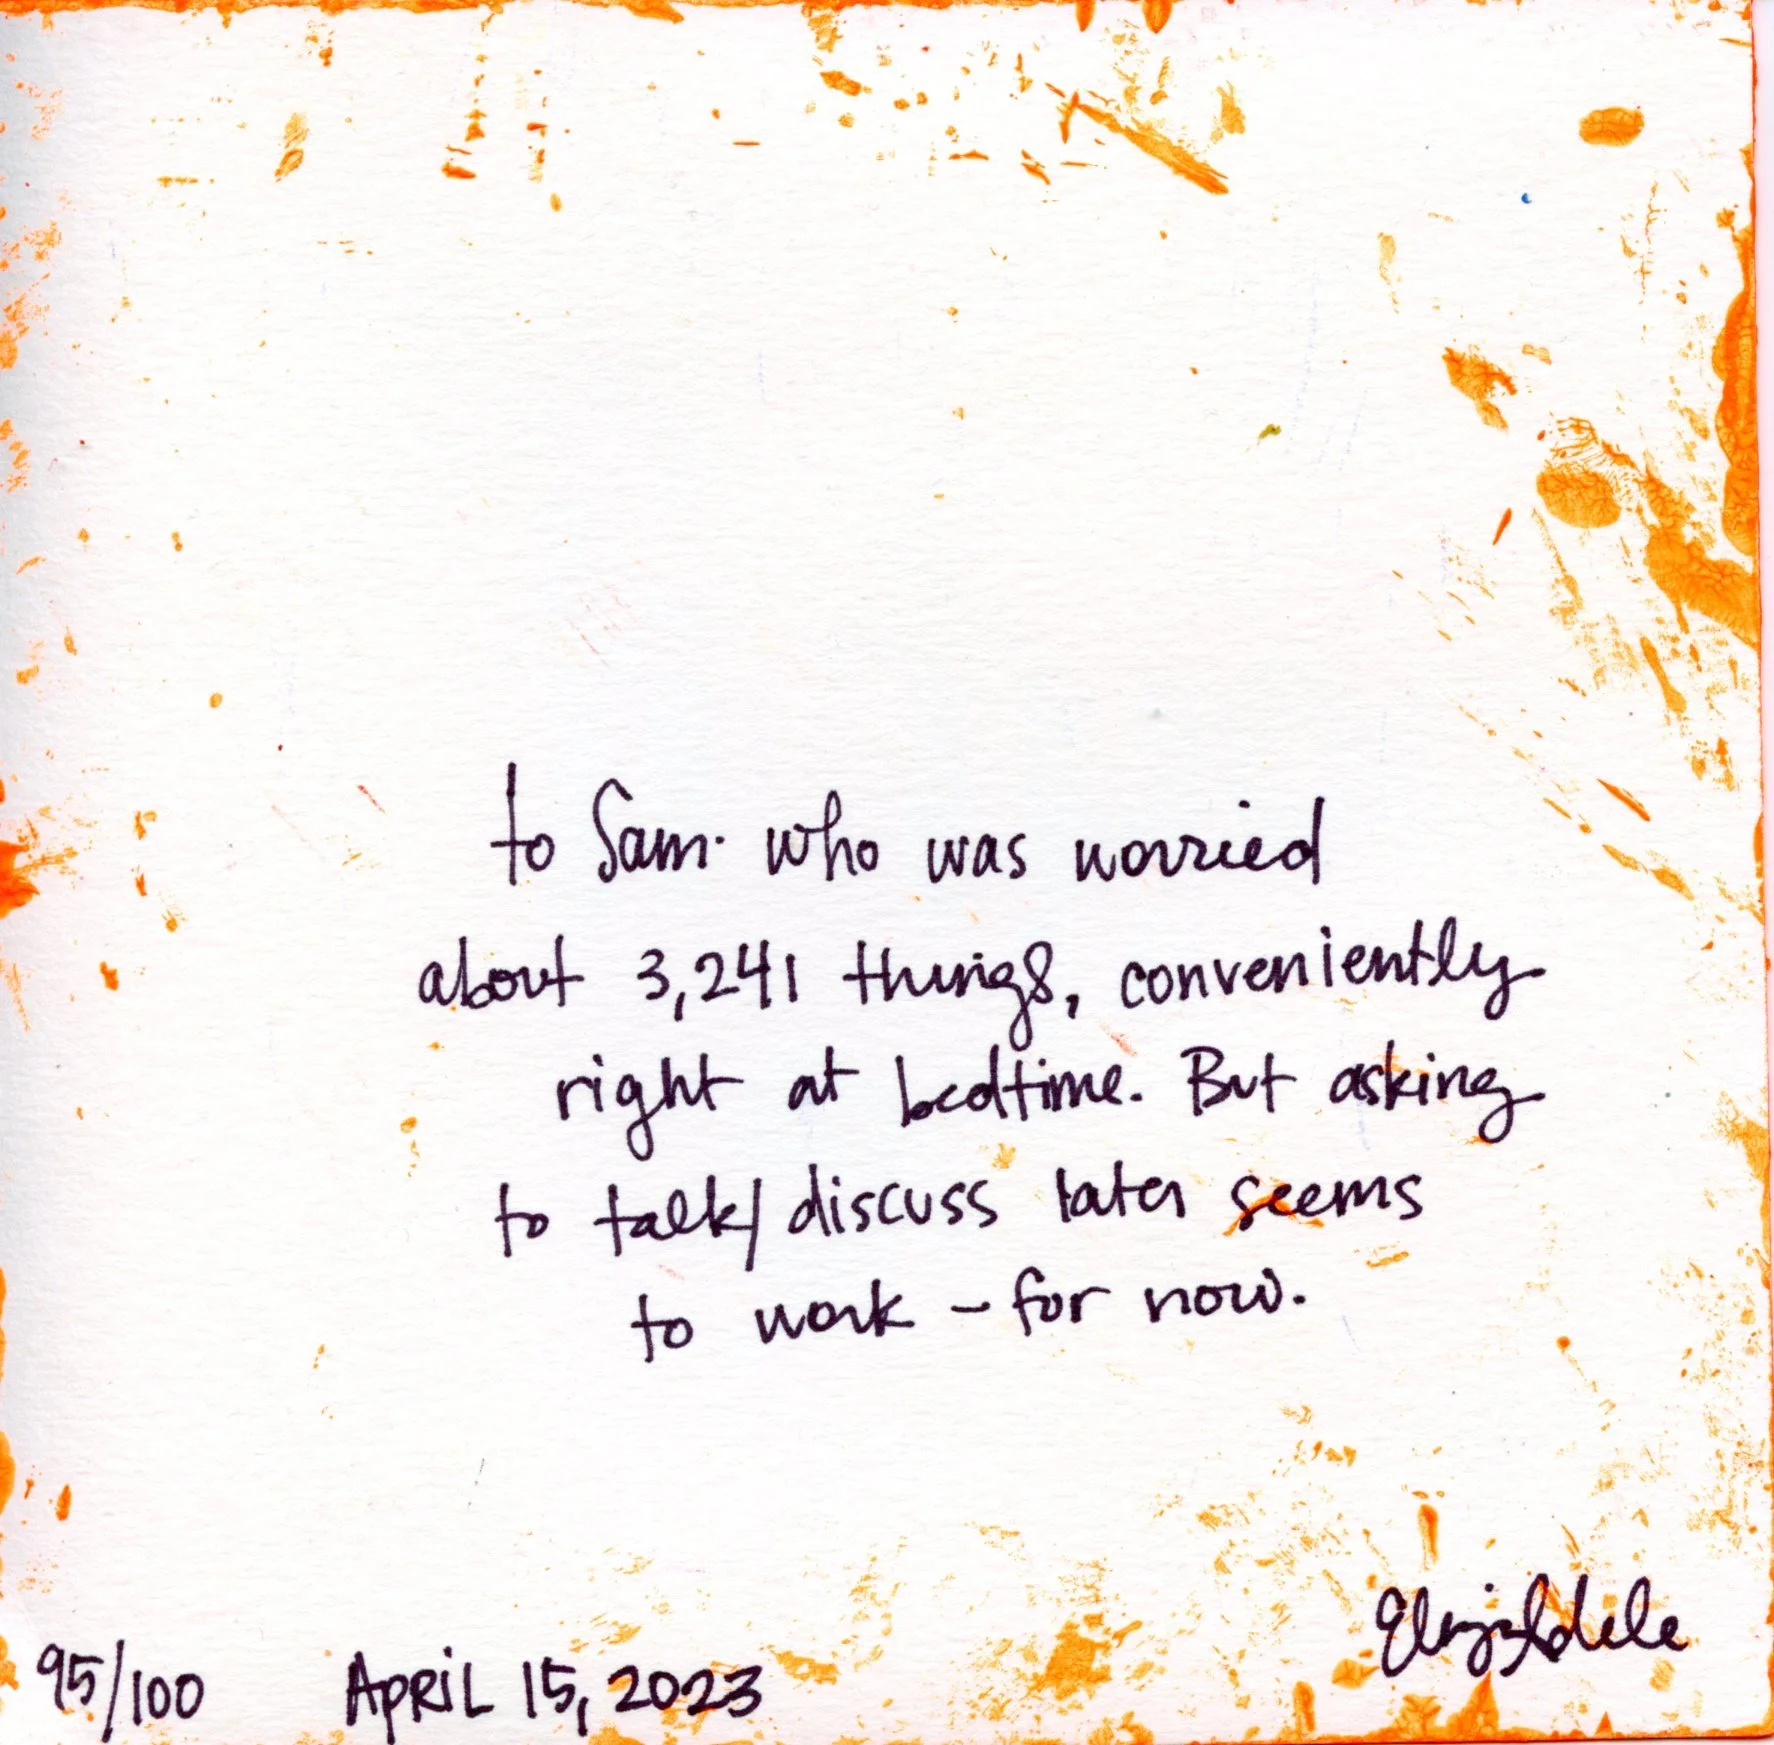 to Sam. who was worried
about 3,241 things, conveniently
right at bedtime. But asking
to talk/discuss later seems
to work – for now.
95/100 April 15, 2023